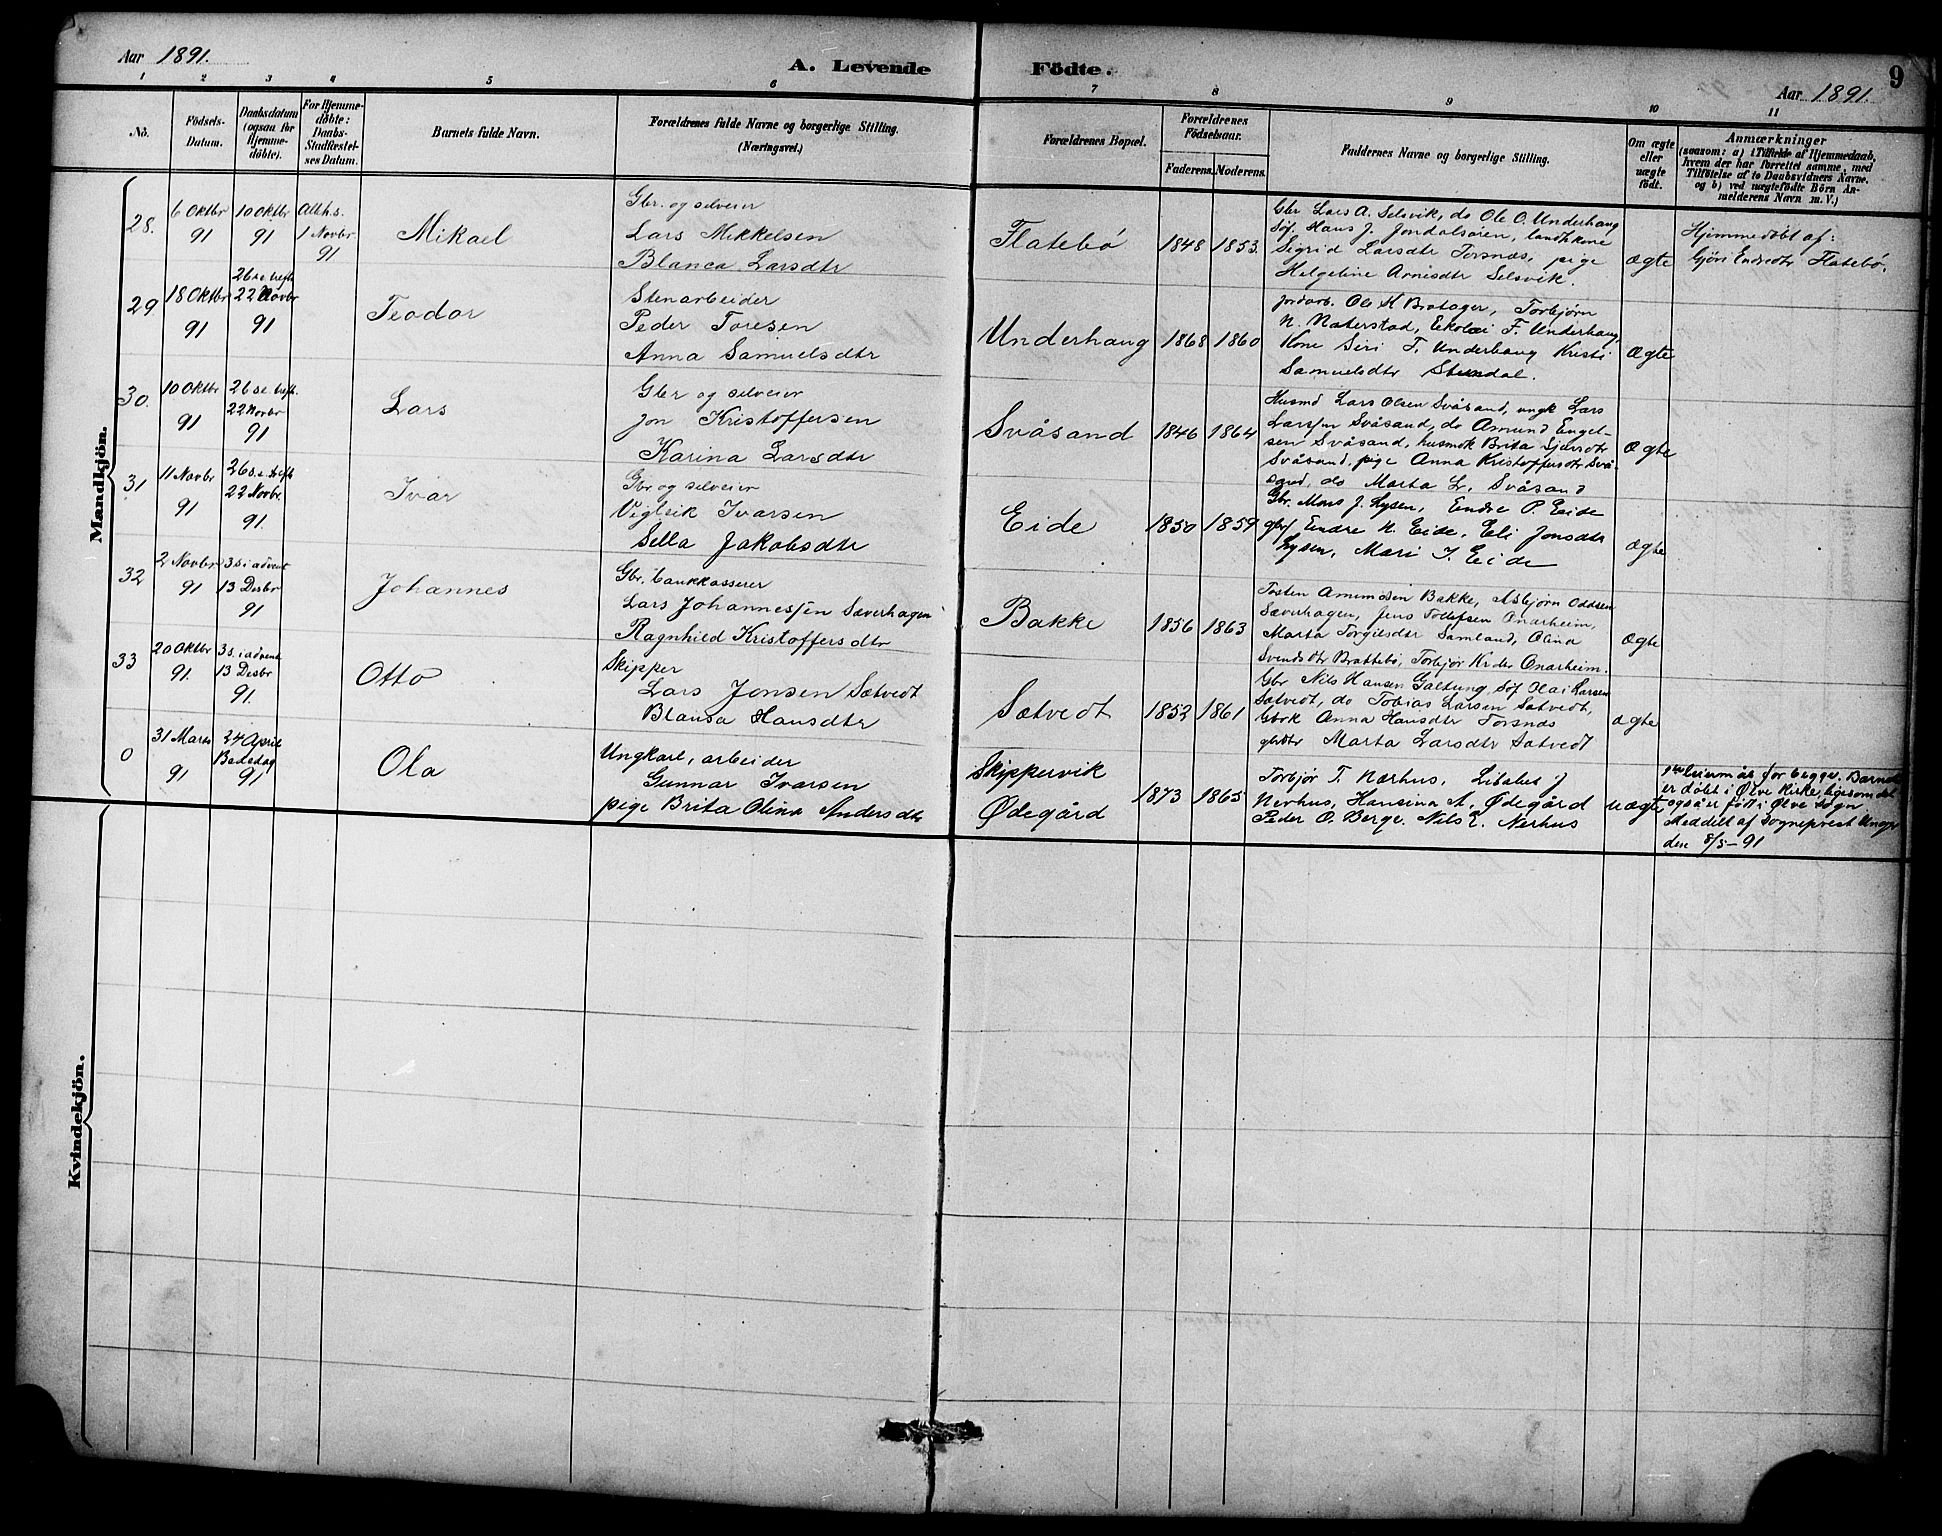 Aar 1891.
A. Levende Födte.
Aar 1891.
9
1 2 3 4 5 6 7 8 9 10 11
No.
Födsels-Datum.
Daabsdatum (ogsaa for Hjemme-döbte).
For Hjemme-döbte: Daabs-Stadfæstel-ses Datum.
Barnets fulde Navn.
Forældrenes fulde Navne og borgerlige Stilling.
(Næringsvei.)
Forældrenes Bopæl.
Forældrenes Födselsaar.
Faderens. Moderens.
Faddernes Navne og borgerlige Stilling.
Om ægte eller uægte födt.
Anmærkninger
(saasom: a) i Tilfælde af Hjemmedaab,
hvem der har forrettet samme, med
Tilföielse af to Daabsvidners Navne.
og b) ved uægtefödte Börn An-
melderens Navn m. V.)
Mandkjön.
28.
6 Oktbr
91
10 Oktbr
91
Allh.s.
1 Novbr
91
Mikael
Gbr. og selveier
Lars Mikkelsen
Blanca Larsdtr
Flatebö
1848 1853
Gbr Lars A. Selsvik, do Ole O. Underhaug
Söf. Hans J. Jondalsöien,
Sigrid Larsdtr Torsnæs, pige
Helgeline Arnesdtr Selsvik.
ægte
Hjemmedöbt af:
Gjöri Endredtr Flatebö.
29
18 Oktbr
91
26 s.e. trefh.
22 Novbr
91
Teodor
Stenarbeider
Peder Toresen
Anna Samuelsdtr
Underhaug
1868 1860
Jordarb. Ole H Bratager, Torbjörn
N. Naterstad, F. Underhaug,
Kone Siri T. Underhaug Kristi
Samuelsdtr Stendal.
ægte
30.
10 Oktbr
91
26 s.e. trefh.
22 Novbr
91
Lars
Gbr og selveier
Jon Kristoffersen
Karina Larsdtr
Svåsand
1846 1864
Husmd Lars Olsen Svåsand, ungk Lars
Larssen Svåsand, do Amund Engel-
sen Svåsand, husmdk Brita
Svåsand, pige Anna Kristoffersdtr Svå-
sand, do Marta L. Svåsand
ægte
31
11 Novbr
91
26 s.e. trefh
22 Novbr
91.
Ivar
Gbr og selveier
Vigleik Ivarsen
Sella Jakobsdtr
Eide
1850 1859
Gbr. Mons J. Lysen, Endre P. Eide
gbrs Endre H. Eide, Eli Jonsdtr
Lysen, Mari I. Eide
ægte
32
2 Novbr
91
3 s. i advent
13 Desbr
91
Johannes
Gbr, bankkasserer
Lars Johannessen Sæverhagen
Ragnhild Kristoffersdtr
Bakke
1856 1863
Tosten Amundsen Bakke, Asbjörn Oddsen
Sæverhagen, Jens Tollefsen Onarheim,
Marta Torgilsdtr Samland, Olina
Svendsdtr Brattebö, Torbjör Krdtr Onarheim.
ægte
33
20 Oktbr
91.
3 s. i advent
13 Desbr
91.
Otto
Skipper
Lars Jonsen Sætvedt
Blansa Hansdtr
Sætvedt
1852 1861
Gbr Nils Hansen Galtung, Söf Olai Larsen
Sætvedt, do Tobias Larsen Sætvedt,
Gbrk Anna Hansdtr Torsnæs
gbrdtr Marta Larsdtr Sætvedt
ægte
0
31 Marts
91
24 April
Bededag
91
Ola
Ungkarl, arbeider
Gunnar Ivarsen
pige Brita Olina Andersdtr
Skippervik
Ødegård
1873 1865
Torbjör T. Nærhus, J
Nerhus, Hansina A. Ødegård
Peder O. Berge. Nils E. Nerhus
uægte
1ste leiermål for begge. Barnet
er döbt i Ølve Kirke, ligesom det
også er födt i Ølve Sogn
Meddelt af Sogneprest Unger
den 8/5-91
Kvindekjön.